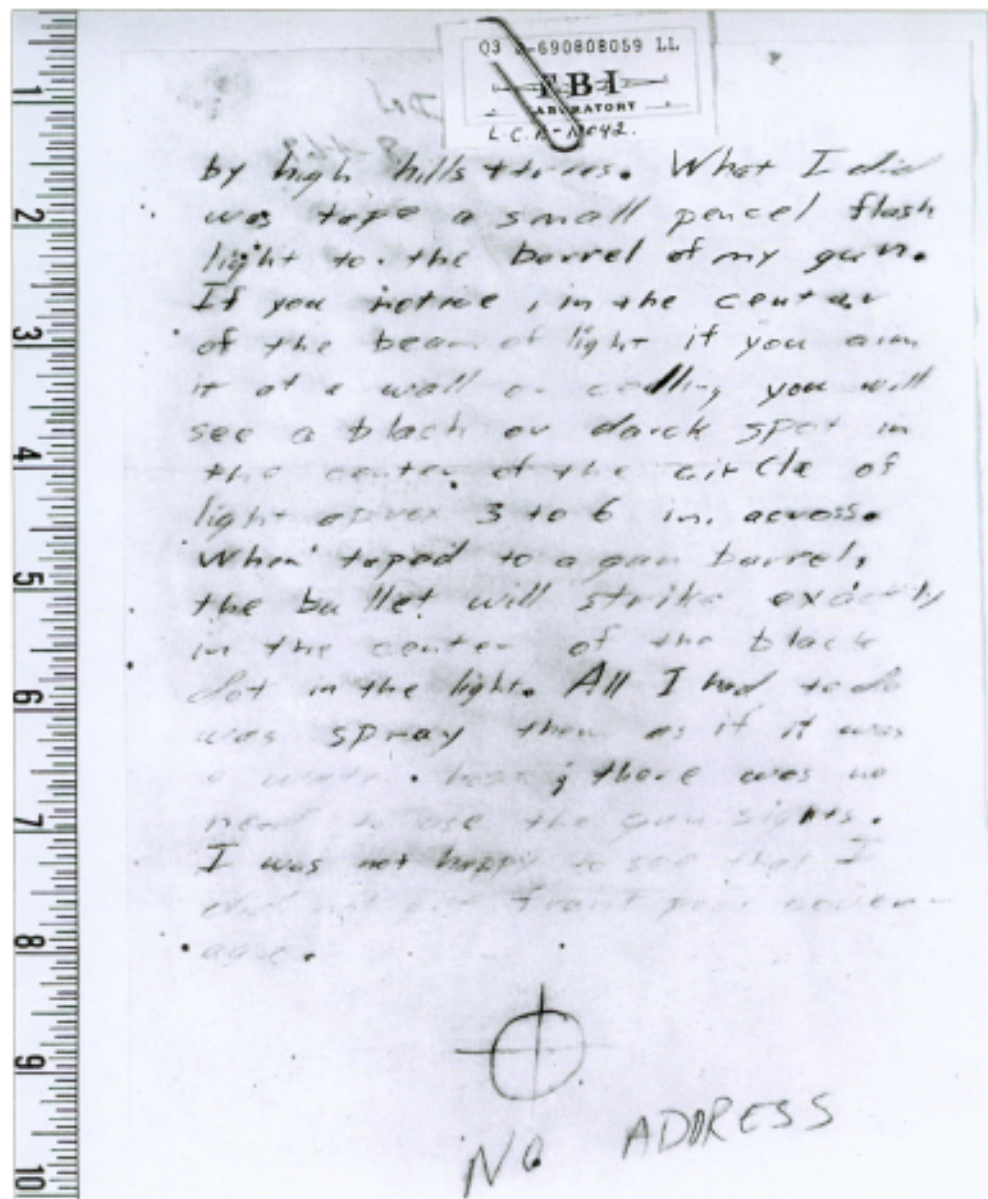 Q3 -690808059 LL
FBI
LABORATORY
by high hills + trees. What I did
was tape a small pencel flash
light to the barrel of my gun.
If you notice, in the center
of the beam of light if you aim
it at a wall or celling you will
see a black or darck spot in
the center of the circle of
light aprox 3 to 6 in. across.
When taped to a gun barrel,
the bullet will strike exactly
in the center of the black
dot in the light. All I had to do
was spray them as if it was
a water hose; there was no
need to use the gun sights.
I was not happy to see that I
did not get front page cover-
age.
NO ADDRESS